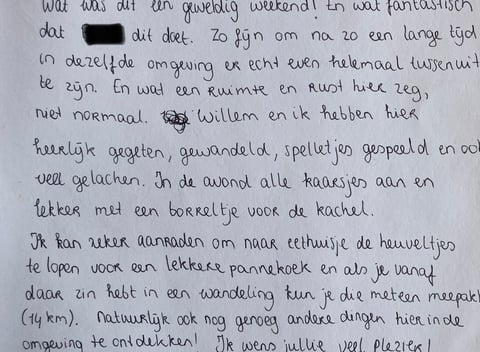 Wat was dit een geweldig weekend! En wat fantastisch
dat dit doet. Zo fijn om na zo een lange tijd
in dezelfde omgeving er echt even helemaal tussenuit
te zijn. En wat een ruimte en rust hier zeg,
niet normaal. Willem en ik hebben hier
heerlijk gegeten, gewandeld, spelletjes gespeeld en ook
veel gelachen. In de avond alle kaarsjes aan en
lekker met een borreltje voor de kachel.
Ik kan zeker aanraden om naar eethuisje de heuveltjes
te lopen voor een lekkere pannekoek en als je vanaf
daar zin hebt in een wandeling kun je die meteen meepak
(14 km). Natuurlijk ook nog genoeg andere dingen hier in de
omgeving te ontdekken! Ik wens jullie veel plezier!